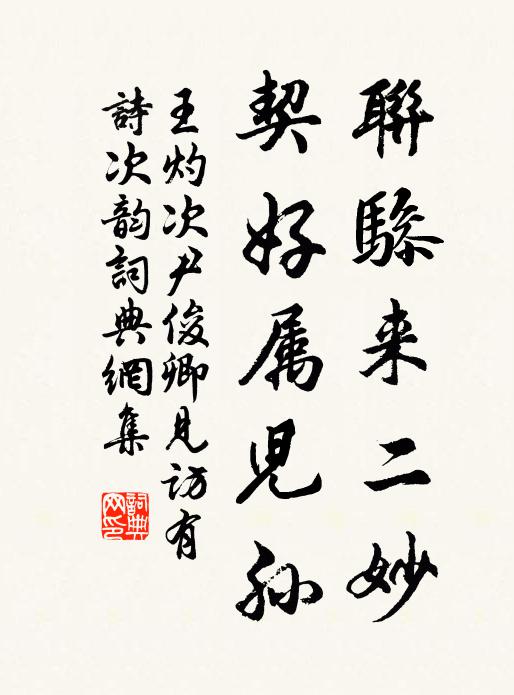 聯驂来二妙
契好属児孙
王灼次尹俊卿見訪有
詩次韵詞典網集
詞典
网印